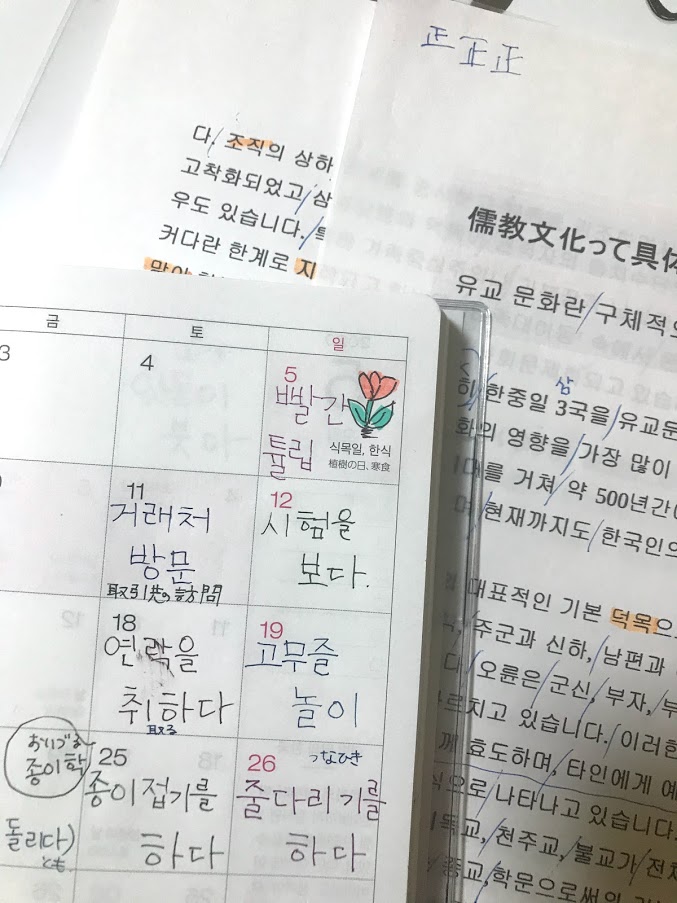 正正正
다. 조직의 상하
고착화되었고 삼
우도 있습니다.
커다란 한계로 지
많이
儒教文化って具体
유교 문화란 구체적으
삼
히 한중일 3국을 유교문
화의 영향을 가장 많이
대를 거쳐 약 500년간
며 현재까지도 한국인으
대표적인 기본 덕목으
주군과 신하, 남편과
오륜은 군신, 부자, 부
르치고 있습니다. 이러한
께 효도하며, 타인에게 예
식으로 나타나고 있습니다.
독교, 천주교, 불교가 전체
종교, 학문으로써의
금 토 일
3 4 5
빨간
튤립
식목일, 한식
植樹の日、寒食
11 12
거래처
방문
取引先の訪問
시험을
보다.
18 19
연락을
취하다
取る
고무즐
놀이
おりづる
종이학
돌리다)
とも
25
종이접기를
하다
26 つなひき
줄다리기를
하다